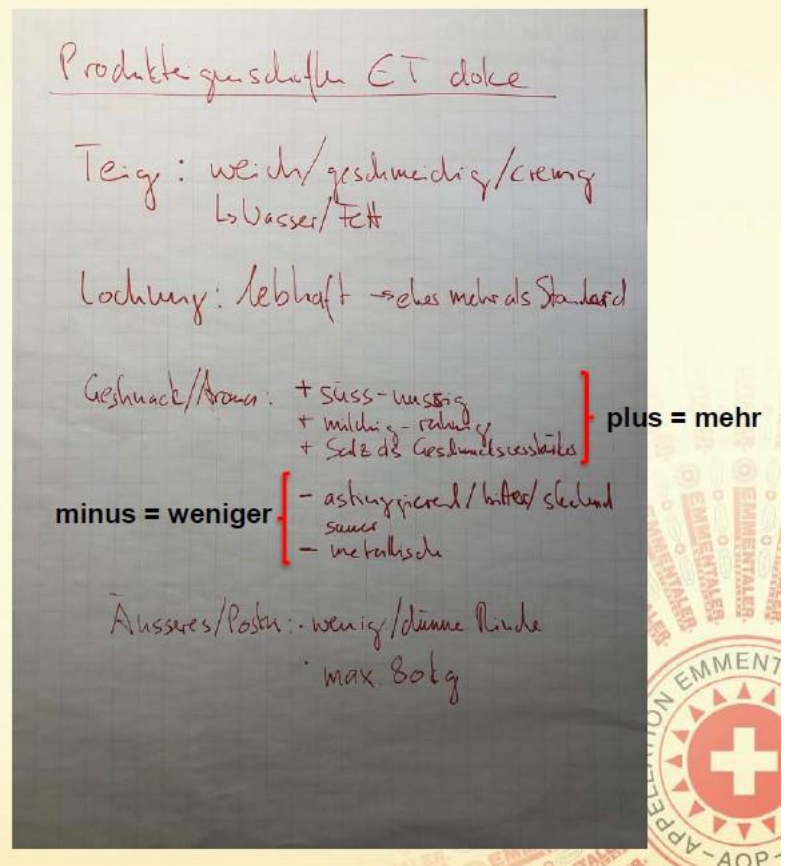 Produkteigenschaften ET dolce
Teig: weich/geschmeidig/cremig
↳ Wasser/Fett
Lochung: lebhaft → eher mehr als Standard
Geschmack/Aroma: + süss-nussig
+ milchig-rahmig
+ Salz als Geschmacksverstärker
plus = mehr
minus = weniger
- astringgierend/bitter/stechend
sauer
- metallisch
Äusseres/Postur: · wenig/dünne Rinde
· max. 80kg
EMMENTALER
EMMENTALER
EMMENTALER
APPELLATION EMMENT
AOP